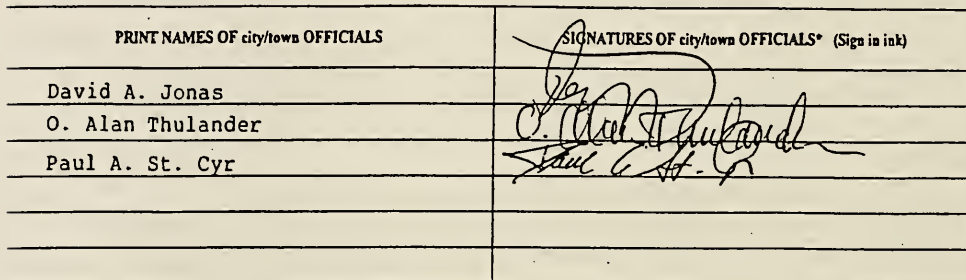 PRINT NAMES OF city/town OFFICIALS SIGNATURES OF city/town OFFICIALS* (Sign in ink)
David A. Jonas
O. Alan Thulander O. Alan Thulander
Paul A. St. Cyr Paul A St. Cyr